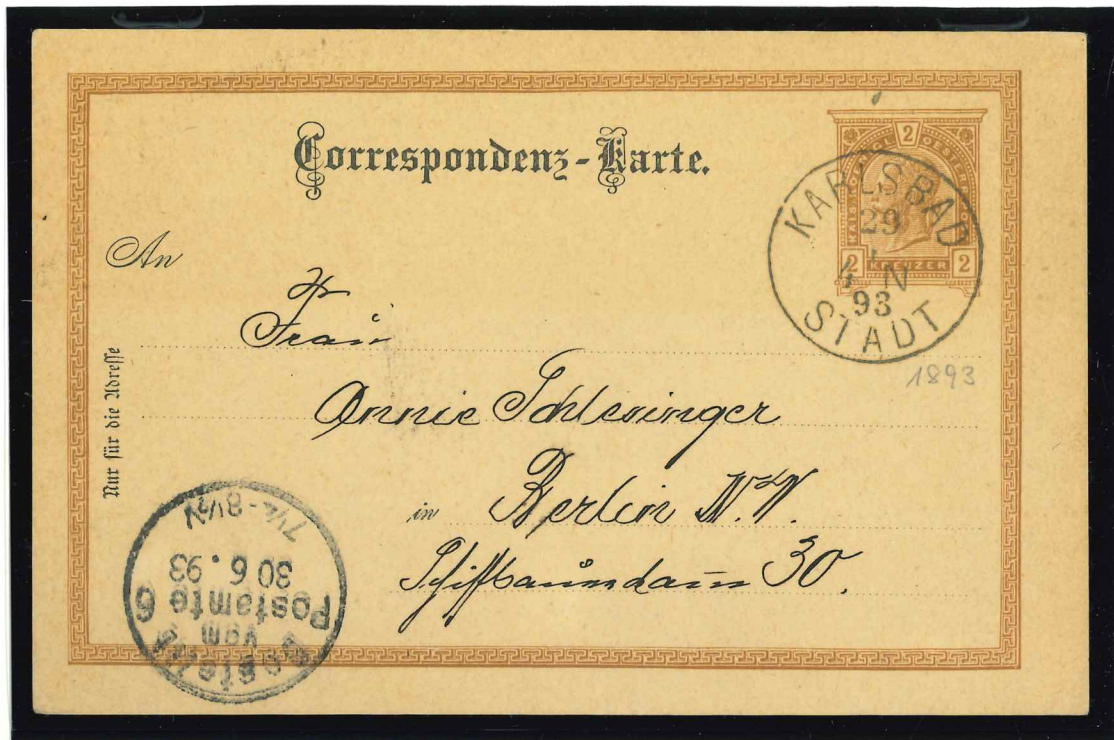 Correspondenz-Karte.
2
KREUZER
2 2
KARLSBAD
29
4 N
93
STADT
1893
An
Frau
Annie Schlesinger
in Berlin N.W.
Schiffbauerdamm 30.
Nur für die Adresse
Bestellt
vom
Postamte 6
30 6. 93
7½-8½N